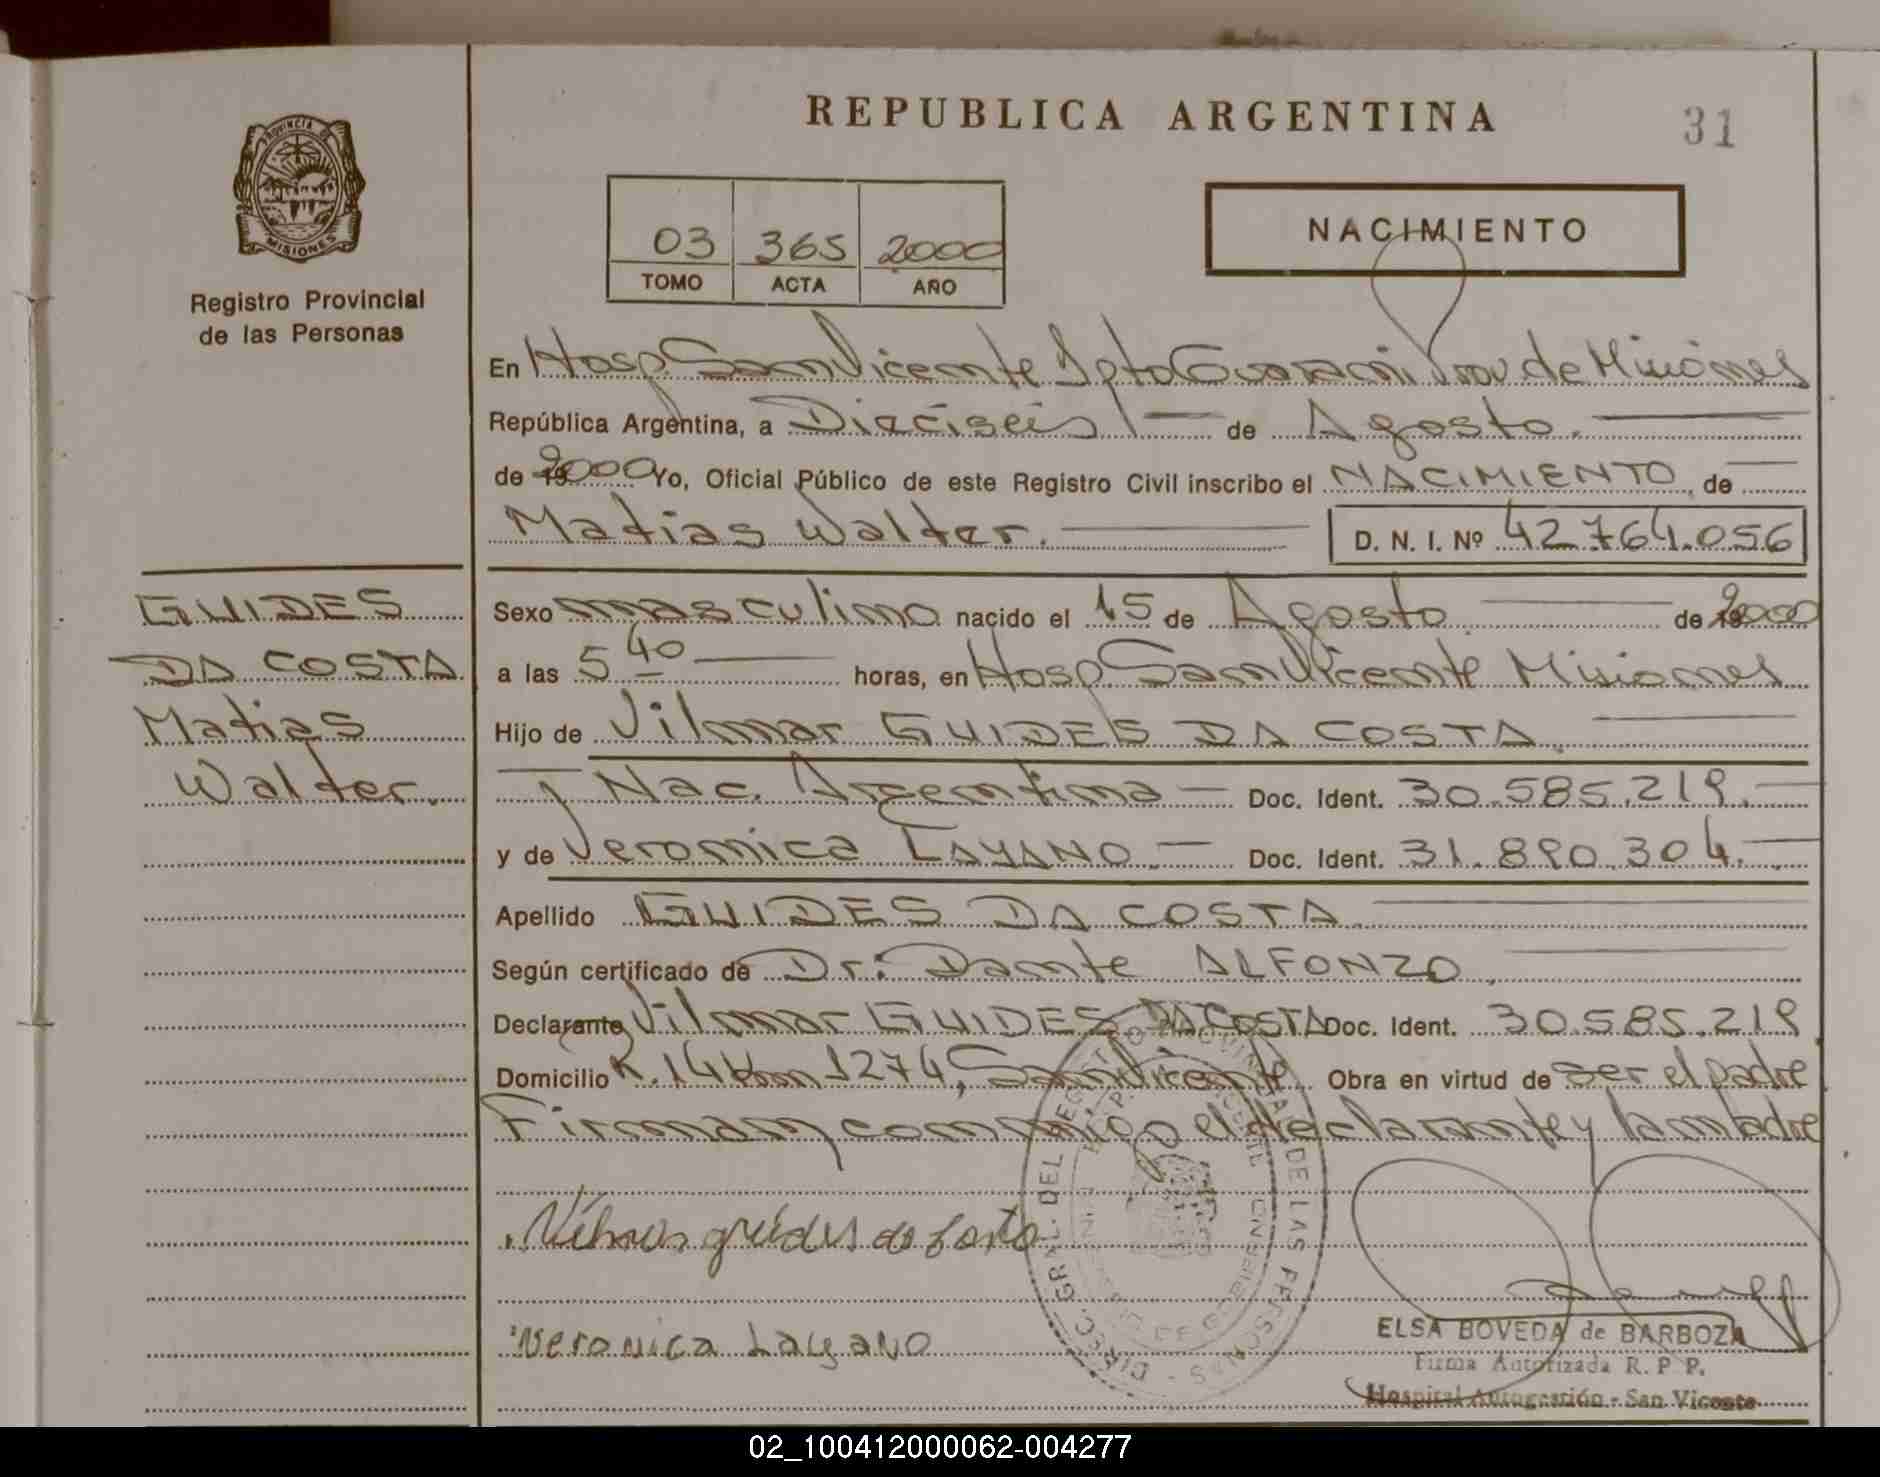 REPUBLICA ARGENTINA
31
PROVINCIA DE
MISIONES
Registro Provincial
de las Personas
03 365 2000
TOMO ACTA AÑO
NACIMIENTO
En Hosp San Vicente Dpto Guarani Prov de Misiones
República Argentina, a Dieciseis de Agosto.
de 19 2000 Yo, Oficial Público de este Registro Civil inscribo el NACIMIENTO de
Matias Walter. D. N. I. Nº 42.764.056
GUIDES
DA COSTA
Matias
Walter.
Sexo masculino nacido el 15 de Agosto de 19 2000
a las 5 40 horas, en Hosp San Vicente Misiones
Hijo de Vilmar GUIDES DA COSTA.
Nac. Argentina Doc. Ident. 30.585.219.
y de Veronica LAYANO. Doc. Ident. 31.890.304.
Apellido GUIDES DA COSTA.
Según certificado de Dr. Dante ALFONZO
Declarante Vilmar GUIDES DA COSTA Doc. Ident. 30.585.219
Domicilio R.14 Km 1274, San Vicente Obra en virtud de ser el padre
Firman conmigo el declarante y la madre
guides da Costa
Veronica Layano
DIREC. GRAL. DEL REGISTRO PROVINCIAL DE LAS PERSONAS
ELSA BOVEDA de BARBOZA
Firma Autorizada R. P. P.
Hospital Autogestión - San Vicente
02_100412000062-004277